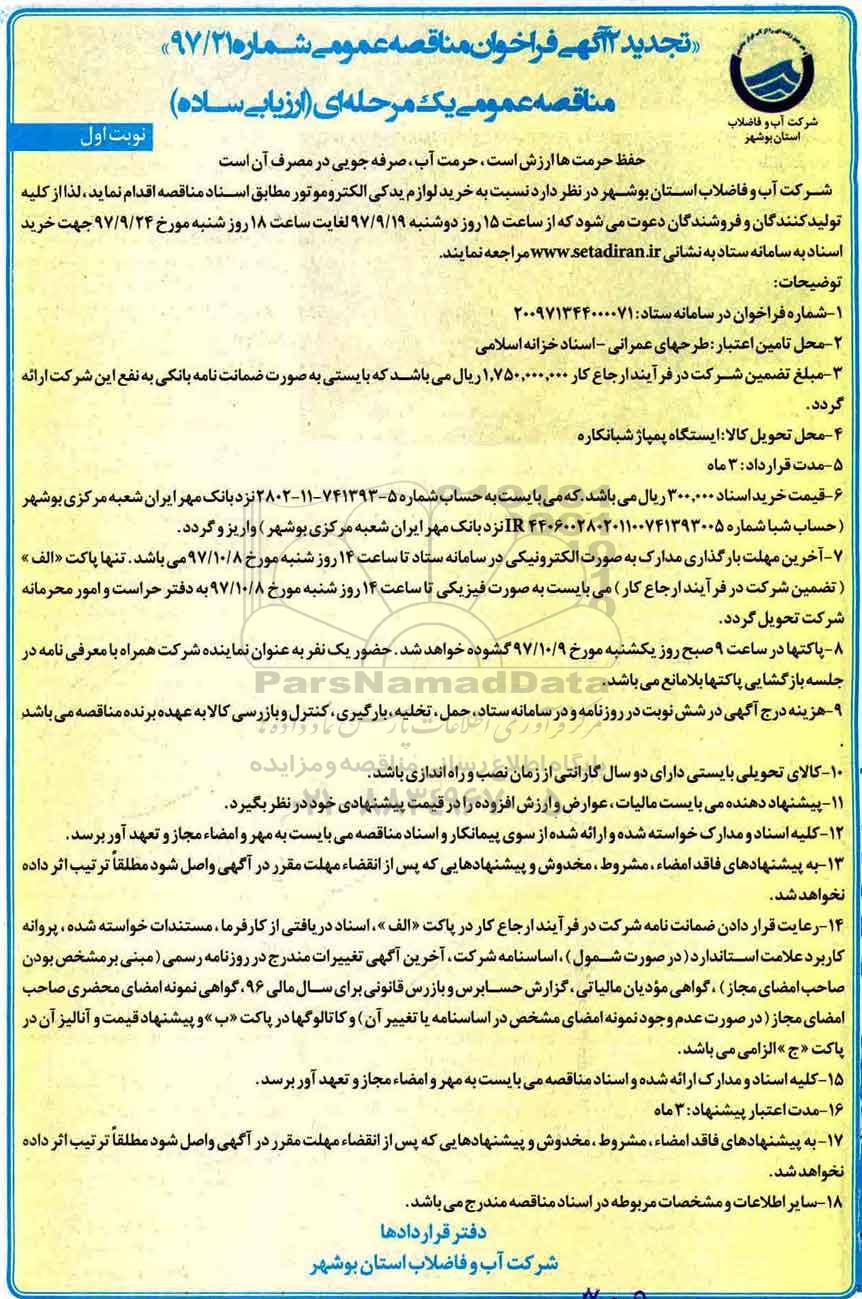 «تجدید ۲آگهی فراخوان مناقصه عمومی شماره ۹۷/۲۱»
مناقصه عمومی یک مرحله‌ای (ارزیابی ساده)
شرکت آب و فاضلاب
استان بوشهر
نوبت اول
حفظ حرمت ها ارزش است، حرمت آب، صرفه جویی در مصرف آن است
شرکت آب و فاضلاب استان بوشهر در نظر دارد نسبت به خرید لوازم یدکی الکتروموتور مطابق اسناد مناقصه اقدام نماید، لذا از کلیه
تولیدکنندگان و فروشندگان دعوت می شود که از ساعت ۱۵ روز دوشنبه ۹۷/۹/۱۹ لغایت ساعت ۱۸ روز شنبه مورخ ۹۷/۹/۲۴ جهت خرید
اسناد به سامانه ستاد به نشانی www.setadiran.ir مراجعه نمایند.
توضیحات:
۱-شماره فراخوان در سامانه ستاد: ۲۰۰۹۷۱۳۴۴۰۰۰۰۷۱
۲-محل تامین اعتبار: طرحهای عمرانی -اسناد خزانه اسلامی
۳-مبلغ تضمین شرکت در فرآیند ارجاع کار ۱,۷۵۰,۰۰۰,۰۰۰ ریال می باشد که بایستی به صورت ضمانت نامه بانکی به نفع این شرکت ارائه
گردد.
۴-محل تحویل کالا: ایستگاه پمپاژ شبانکاره
۵-مدت قرارداد: ۳ ماه
۶-قیمت خرید اسناد ۳۰۰,۰۰۰ ریال می باشد. که می بایست به حساب شماره ۵-۷۴۱۳۹۳-۱۱-۲۸۰۲ نزد بانک مهر ایران شعبه مرکزی بوشهر
(حساب شبا شماره IR ۴۴۰۶۰۰۲۸۰۲۰۱۱۰۰۷۴۱۳۹۳۰۰۵ نزد بانک مهر ایران شعبه مرکزی بوشهر) واریز و گردد.
۷-آخرین مهلت بارگذاری مدارک به صورت الکترونیکی در سامانه ستاد تا ساعت ۱۴ روز شنبه مورخ ۹۷/۱۰/۸ می باشد. تنها پاکت «الف»
(تضمین شرکت در فرآیند ارجاع کار) می بایست به صورت فیزیکی تا ساعت ۱۴ روز شنبه مورخ ۹۷/۱۰/۸ به دفتر حراست و امور محرمانه
شرکت تحویل گردد.
۸-پاکتها در ساعت ۹ صبح روز یکشنبه مورخ ۹۷/۱۰/۹ گشوده خواهد شد. حضور یک نفر به عنوان نماینده شرکت همراه با معرفی نامه در
جلسه بازگشایی پاکتها بلامانع می باشد.
ParsNamadData
۹-هزینه درج آگهی در شش نوبت در روزنامه و در سامانه ستاد، حمل، تخلیه، بارگیری، کنترل و بازرسی کالا به عهده برنده مناقصه می باشد
.
پایگاه اطلاع رسانی مناقصه و مزایده
۱۰-کالای تحویلی بایستی دارای دو سال گارانتی از زمان نصب و راه اندازی باشد.
۱۱-پیشنهاد دهنده می بایست مالیات، عوارض و ارزش افزوده را در قیمت پیشنهادی خود در نظر بگیرد.
۱۲-کلیه اسناد و مدارک خواسته شده و ارائه شده از سوی پیمانکار و اسناد مناقصه می بایست به مهر و امضاء مجاز و تعهد آور برسد.
۱۳-به پیشنهادهای فاقد امضاء، مشروط، مخدوش و پیشنهادهایی که پس از انقضاء مهلت مقرر در آگهی واصل شود مطلقاً ترتیب اثر داده
نخواهد شد.
۱۴-رعایت قرار دادن ضمانت نامه شرکت در فرآیند ارجاع کار در پاکت «الف»، اسناد دریافتی از کارفرما، مستندات خواسته شده، پروانه
کاربرد علامت استاندارد (در صورت شمول)، اساسنامه شرکت، آخرین آگهی تغییرات مندرج در روزنامه رسمی (مبنی بر مشخص بودن
صاحب امضای مجاز)، گواهی مؤدیان مالیاتی، گزارش حسابرس و بازرس قانونی برای سال مالی ۹۶، گواهی نمونه امضای محضری صاحب
امضای مجاز (در صورت عدم وجود نمونه امضای مشخص در اساسنامه یا تغییر آن) و کاتالوگها در پاکت «ب» و پیشنهاد قیمت و آنالیز آن در
پاکت «ج» الزامی می باشد.
۱۵-کلیه اسناد و مدارک ارائه شده و اسناد مناقصه می بایست به مهر و امضاء مجاز و تعهد آور برسد.
۱۶-مدت اعتبار پیشنهاد: ۳ ماه
۱۷-به پیشنهادهای فاقد امضاء، مشروط، مخدوش و پیشنهادهایی که پس از انقضاء مهلت مقرر در آگهی واصل شود مطلقاً ترتیب اثر داده
نخواهد شد.
۱۸-سایر اطلاعات و مشخصات مربوطه در اسناد مناقصه مندرج می باشد.
دفتر قراردادها
شرکت آب و فاضلاب استان بوشهر